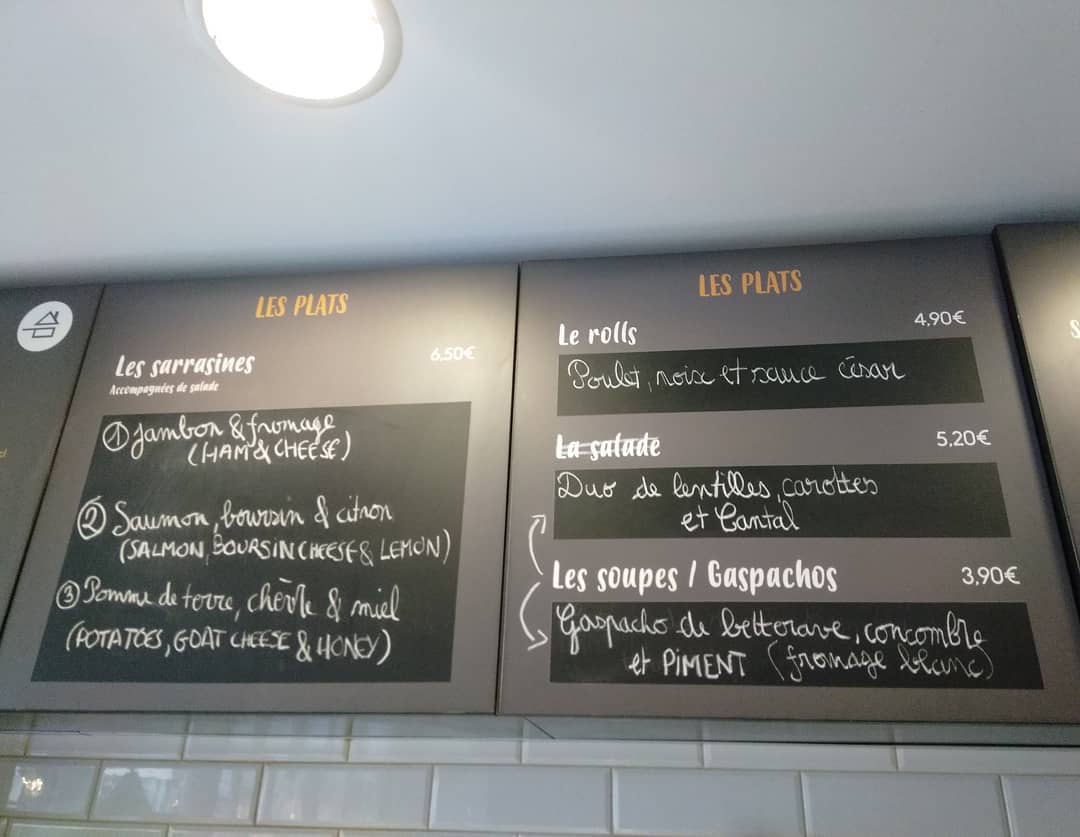 LES PLATS
Les sarrasines 6,50€
Accompagnées de salade
① Jambon & fromage
(HAM & CHEESE)
② Saumon, boursin & citron
(SALMON, BOURSIN CHEESE & LEMON)
③ Pomme de terre, chèvre & miel
(POTATOES, GOAT CHEESE & HONEY)
LES PLATS
Le rolls 4,90€
Poulet, noix et sauce césar
La salade 5,20€
Duo de lentilles, carottes
et Cantal
Les soupes / Gaspachos 3,90€
Gaspacho de betterave, concombre
et PIMENT (fromage blanc)